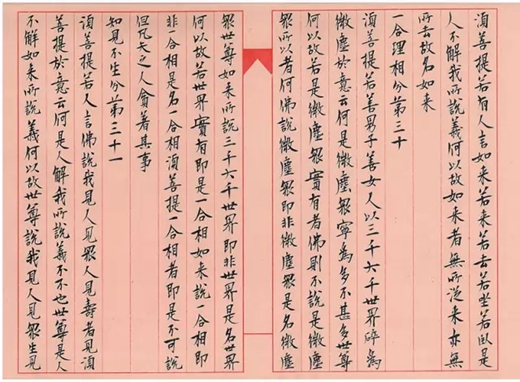 須菩提若有人言如来若来若去若坐若臥是
人不解我所說義何以故如来者無所從来亦無
所去故名如来
一合理相分第三十
須菩提若善男子善女人以三千大千世界碎為
微塵於意云何是微塵眾寧為多不甚多世尊
何以故若是微塵眾實有者佛則不說是微塵
眾所以者何佛說微塵眾即非微塵眾是名微塵
眾世尊如来所說三千大千世界即非世界是名世界
何以故若世界實有即是一合相如来說一合相即
非一合相是名一合相須菩提一合相者即是不可說
但凡夫之人貪著其事
知見不生分第三十一
須菩提若人言佛說我見人見眾人見壽者見須
菩提於意云何是人解我所說義不不也世尊是人
不解如来所說義何以故世尊說我見人見眾生見